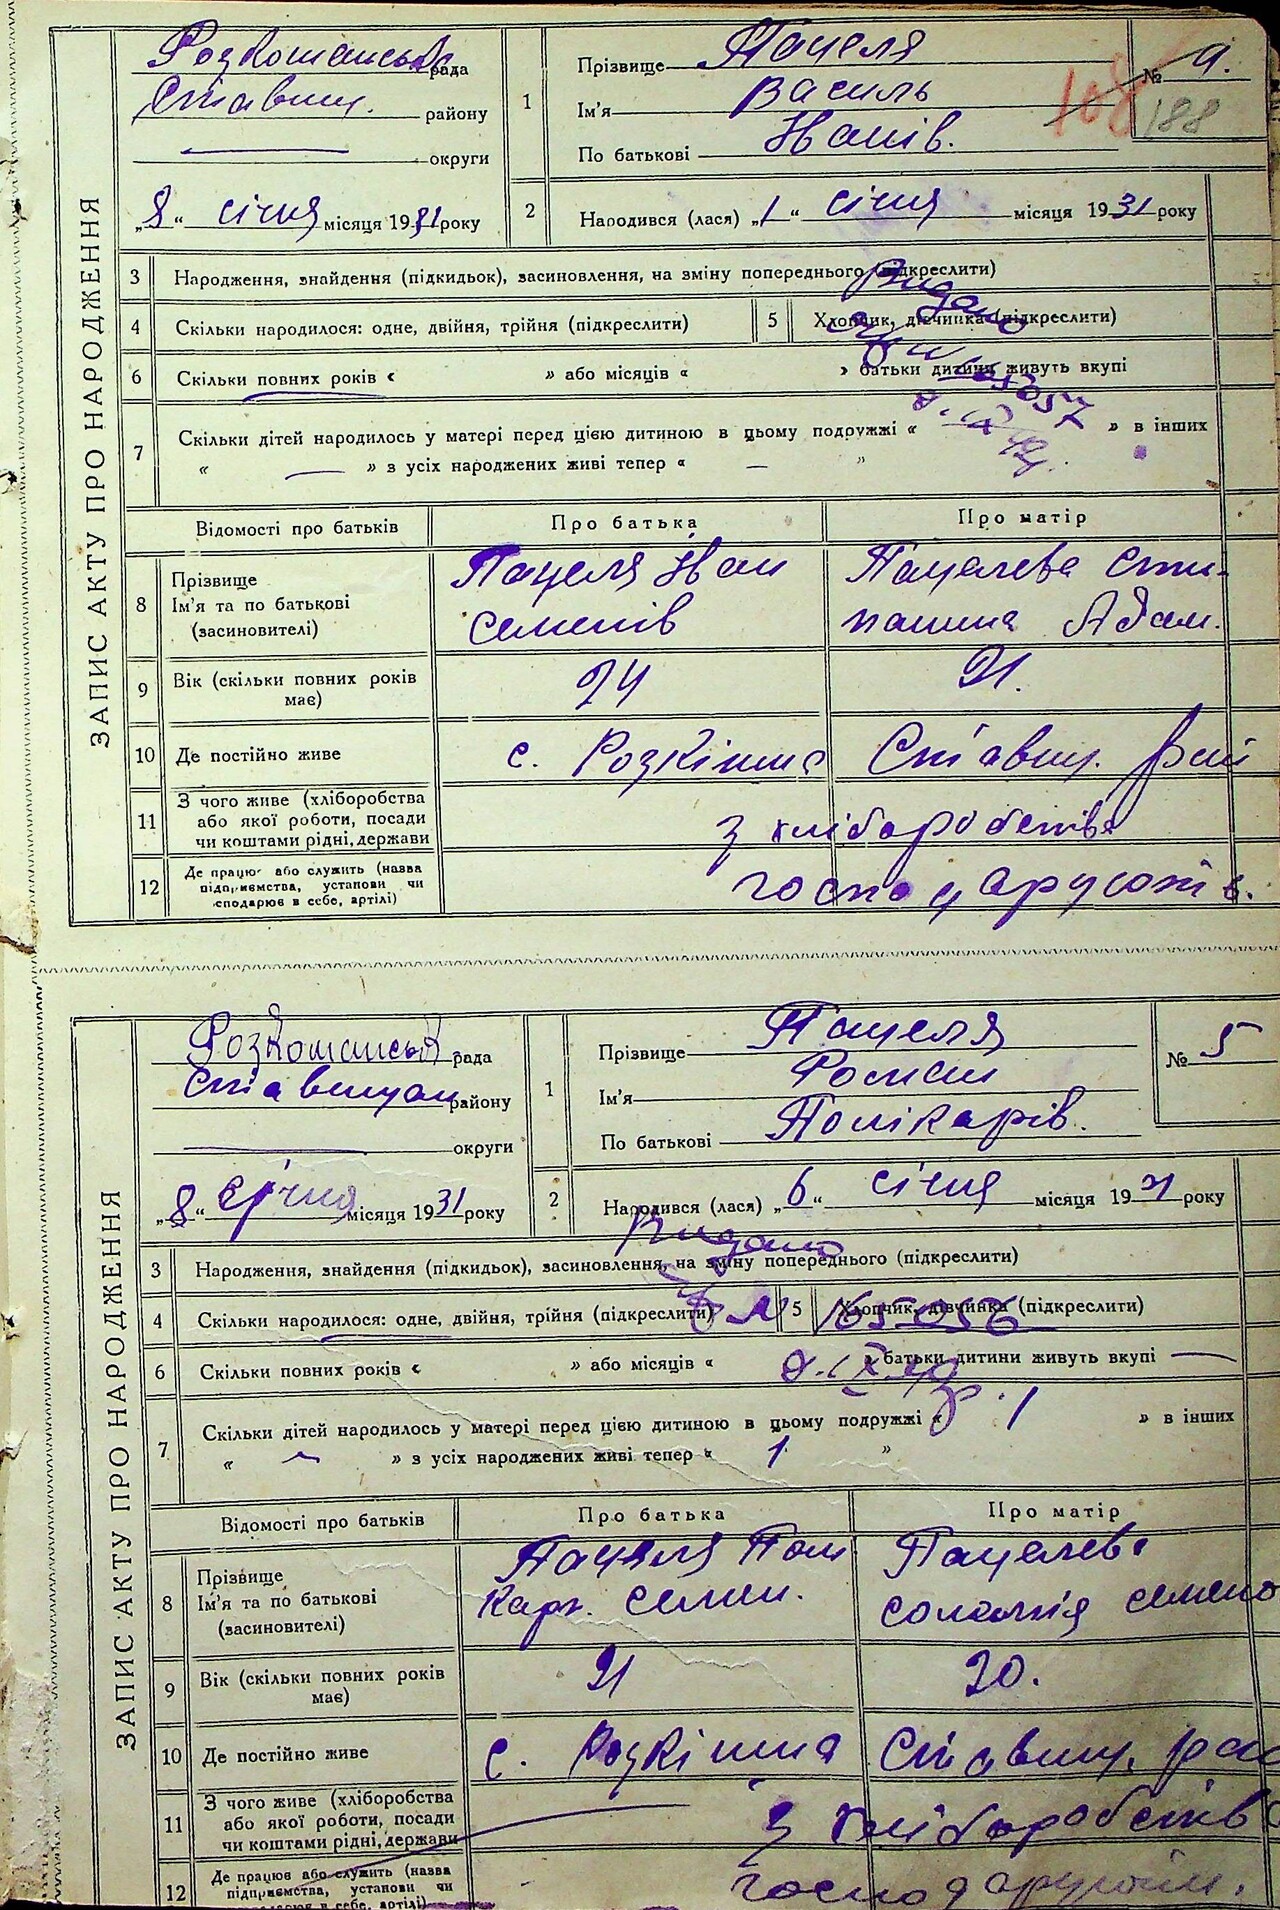 ЗАПИС АКТУ ПРО НАРОДЖЕННЯ
Розкошанська рада
Ставищ. району
округи
„8“ січня місяця 1931 року
1
Прізвище Пацеля
Ім'я Василь
По батькові Іванів.
№ 4.
108
188
2 Народився (лася) „1“ січня місяця 1931 року
3 Народження, знайдення (підкидьок), засиновлення, на зміну попереднього (підкреслити)
Видано
4 Скільки народилося: одне, двійня, трійня (підкреслити)
5 Хлопчик, дівчинка (підкреслити)
6 Скільки повних років « » або місяців « » батьки дитини живуть вкупі
7 Скільки дітей народилось у матері перед цією дитиною в цьому подружжі « » в інших
« — » з усіх народжених живі тепер « — »
Відомості про батьків Про батька Про матір
8 Прізвище Ім'я та по батькові (засиновителі)
Пацеля Іван Семенів
Пацелева Сти-
панина Адам.
9 Вік (скільки повних років має) 24 21.
10 Де постійно живе с. Розкішна Ставищ. рай
11 З чого живе (хліборобства або якої роботи, посади чи коштами рідні, держави
з хліборобства
12 Де працює або служить (назва підприємства, установи чи господарює в себе, артілі)
господарстві.
ЗАПИС АКТУ ПРО НАРОДЖЕННЯ
Розкошанська рада
Ставищан району
округи
„8“ січня місяця 1931 року
1
Прізвище Пацеля
Ім'я Роман
По батькові Полікарів.
№ 5
2 Народився (лася) „6“ січня місяця 1931 року
Видано
3 Народження, знайдення (підкидьок), засиновлення, на зміну попереднього (підкреслити)
4 Скільки народилося: одне, двійня, трійня (підкреслити)
№ 165056
5 Хлопчик, дівчинка (підкреслити)
6 Скільки повних років « » або місяців « батьки дитини живуть вкупі —
7 Скільки дітей народилось у матері перед цією дитиною в цьому подружжі « 1 » в інших
« — » з усіх народжених живі тепер « 1 »
Відомості про батьків Про батька Про матір
8 Прізвище Ім'я та по батькові (засиновителі)
Пацеля Полі
карп. Семен.
Пацелева
Соломія Семено
9 Вік (скільки повних років має) 21 20.
10 Де постійно живе с. Розкішна Ставищ. рай
11 З чого живе (хліборобства або якої роботи, посади чи коштами рідні, держави
з хліборобства
12 Де працює або служить (назва підприємства, установи чи господарює в себе, артілі)